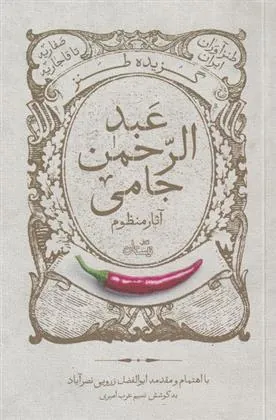 طنزآوران ایران
صفاریه تا قاجاریه
گزیده طنز
عبد
الرحمن
جامی
آثار منظوم
با اهتمام و مقدمه ابوالفضل زرویی نصرآباد
به کوشش نسیم عرب امیری